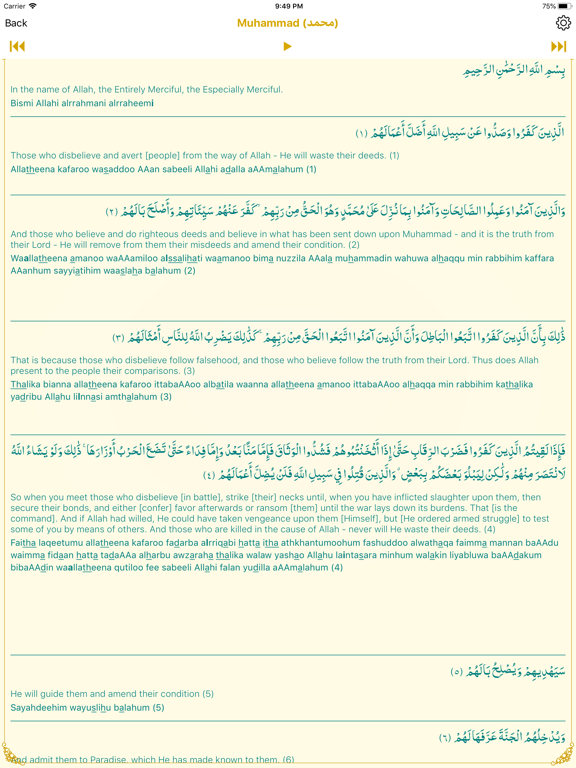 Carrier 9:49 PM 75%
Back Muhammad (محمد)
بِسْمِ اللَّهِ الرَّحْمَٰنِ الرَّحِيمِ
In the name of Allah, the Entirely Merciful, the Especially Merciful.
Bismi Allahi alrrahmani alrraheemi
الَّذِينَ كَفَرُوا وَصَدُّوا عَنْ سَبِيلِ اللَّهِ أَضَلَّ أَعْمَالَهُمْ (١)
Those who disbelieve and avert [people] from the way of Allah - He will waste their deeds. (1)
Allatheena kafaroo wasaddoo AAan sabeeli Allahi adalla aAAmalahum (1)
وَالَّذِينَ آمَنُوا وَعَمِلُوا الصَّالِحَاتِ وَآمَنُوا بِمَا نُزِّلَ عَلَىٰ مُحَمَّدٍ وَهُوَ الْحَقُّ مِنْ رَبِّهِمْ ۙ كَفَّرَ عَنْهُمْ سَيِّئَاتِهِمْ وَأَصْلَحَ بَالَهُمْ (٢)
And those who believe and do righteous deeds and believe in what has been sent down upon Muhammad - and it is the truth from
their Lord - He will remove from them their misdeeds and amend their condition. (2)
Waallatheena amanoo waAAamiloo alssalihati waamanoo bima nuzzila AAala muhammadin wahuwa alhaqqu min rabbihim kaffara
AAanhum sayyiatihim waaslaha balahum (2)
ذَٰلِكَ بِأَنَّ الَّذِينَ كَفَرُوا اتَّبَعُوا الْبَاطِلَ وَأَنَّ الَّذِينَ آمَنُوا اتَّبَعُوا الْحَقَّ مِنْ رَبِّهِمْ ۚ كَذَٰلِكَ يَضْرِبُ اللَّهُ لِلنَّاسِ أَمْثَالَهُمْ (٣)
That is because those who disbelieve follow falsehood, and those who believe follow the truth from their Lord. Thus does Allah
present to the people their comparisons. (3)
Thalika bianna allatheena kafaroo ittabaAAoo albatila waanna allatheena amanoo ittabaAAoo alhaqqa min rabbihim kathalika
yadribu Allahu lilnnasi amthalahum (3)
فَإِذَا لَقِيتُمُ الَّذِينَ كَفَرُوا فَضَرْبَ الرِّقَابِ حَتَّىٰ إِذَا أَثْخَنْتُمُوهُمْ فَشُدُّوا الْوَثَاقَ فَإِمَّا مَنًّا بَعْدُ وَإِمَّا فِدَاءً حَتَّىٰ تَضَعَ الْحَرْبُ أَوْزَارَهَا ۚ ذَٰلِكَ وَلَوْ يَشَاءُ اللَّهُ
لَانْتَصَرَ مِنْهُمْ وَلَٰكِنْ لِيَبْلُوَ بَعْضَكُمْ بِبَعْضٍ ۗ وَالَّذِينَ قُتِلُوا فِي سَبِيلِ اللَّهِ فَلَنْ يُضِلَّ أَعْمَالَهُمْ (٤)
So when you meet those who disbelieve [in battle], strike [their] necks until, when you have inflicted slaughter upon them, then
secure their bonds, and either [confer] favor afterwards or ransom [them] until the war lays down its burdens. That [is the
command]. And if Allah had willed, He could have taken vengeance upon them [Himself], but [He ordered armed struggle] to test
some of you by means of others. And those who are killed in the cause of Allah - never will He waste their deeds. (4)
Faitha laqeetumu allatheena kafaroo fadarba alrriqabi hatta itha athkhantumoohum fashuddoo alwathaqa faimma mannan baAAdu
waimma fidaan hatta tadaAAa alharbu awzaraha thalika walaw yashao Allahu laintasara minhum walakin liyabluwa baAAdakum
bibaAAdin waallatheena qutiloo fee sabeeli Allahi falan yudilla aAAmalahum (4)
سَيَهْدِيهِمْ وَيُصْلِحُ بَالَهُمْ (٥)
He will guide them and amend their condition (5)
Sayahdeehim wayuslihu balahum (5)
وَيُدْخِلُهُمُ الْجَنَّةَ عَرَّفَهَا لَهُمْ (٦)
And admit them to Paradise, which He has made known to them. (6)